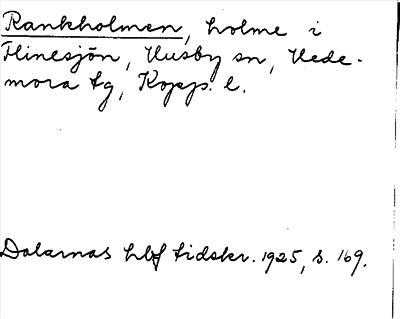 Rankholmen, holme i
Flinesjön, Husby sn, Hede-
mora tg, Kopp. l.
Dalarnas hbf tidskr. 1925, s. 169.